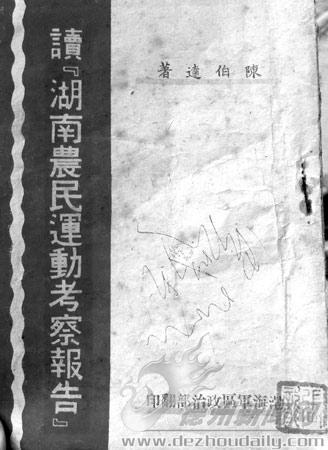 讀『湖南農民運動考察報告』
陳伯達著
海軍區政治部翻印
www.dezhoudaily.com